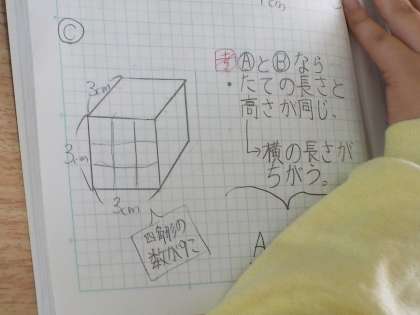 cm
Ⓒ
3cm
3cm
3cm
四角形の
数が9こ
考 ⒶとⒷなら
・たての長さと
高さが同じ、
→横の長さが
ちがう。
A